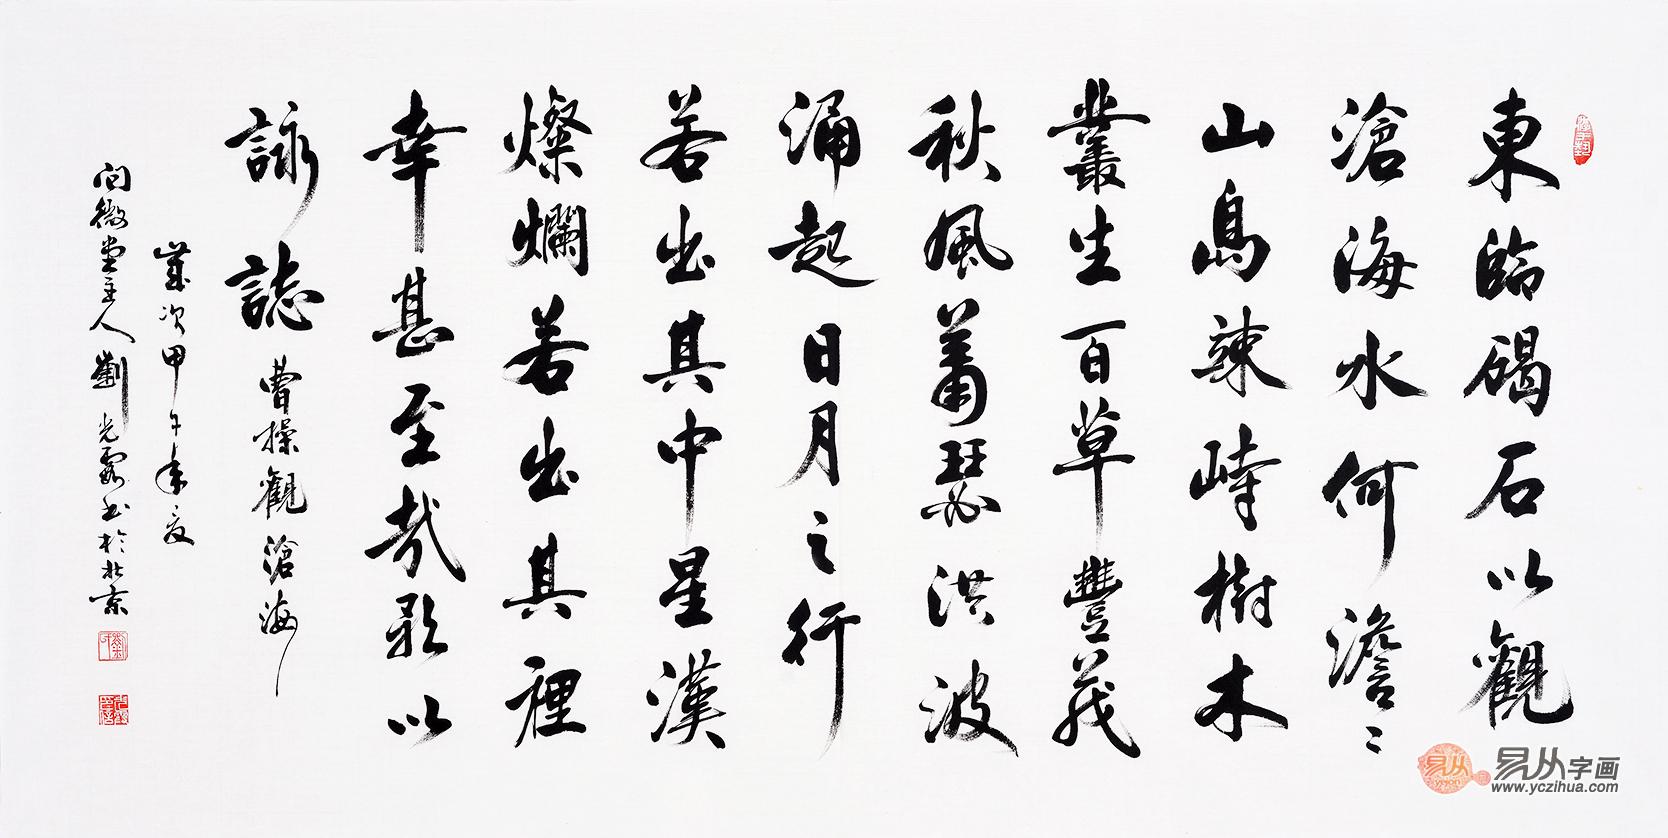 東臨碣石以觀
滄海水何澹〻
山島竦峙樹木
叢生百草豐茂
秋風蕭瑟洪波
涌起日月之行
若出其中星漢
燦爛若出其裡
幸甚至哉歌以
詠誌 曹操觀滄海
歲次甲午年夏
問微堂主人劉光霞书於北京
易从字画
www.yczihua.com